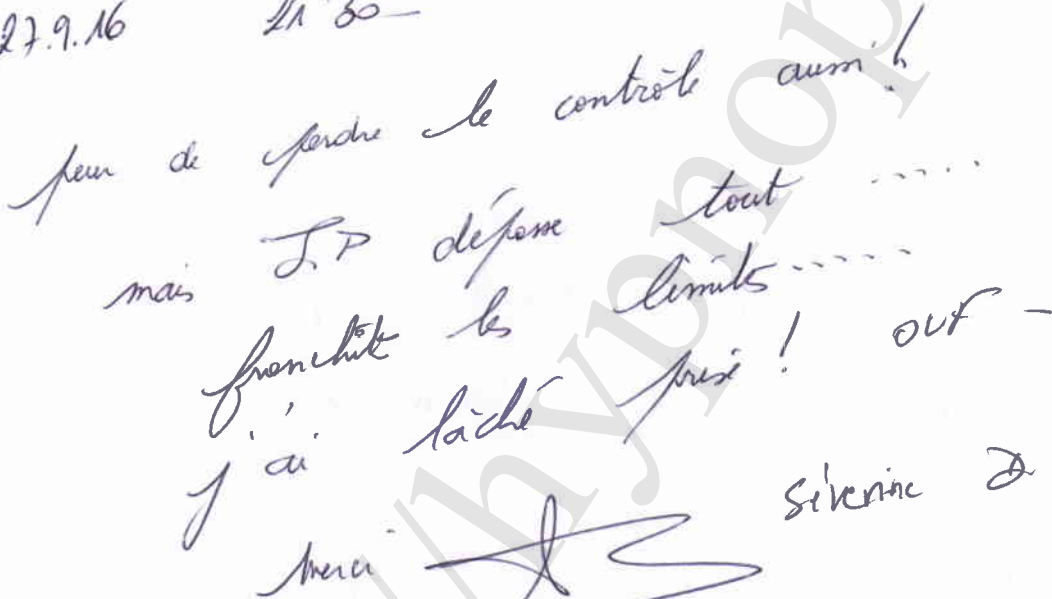 27.9.16 21 30
peur de perdre le contrôle aussi!
mais J.P dépasse tout .....
franchit les limites .....
j'ai lâché prise! OUF -
Séverine D
Merci
/hypnop